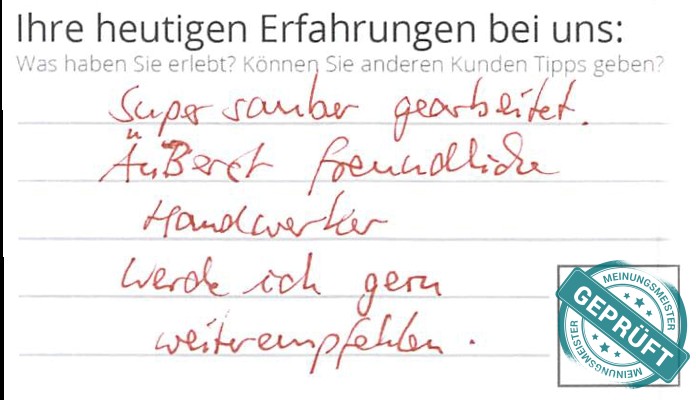 Ihre heutigen Erfahrungen bei uns:
Was haben Sie erlebt? Können Sie anderen Kunden Tipps geben?
Super sauber gearbeitet.
Äußerst freundliche
Handwerker
Werde ich gern
weiterempfehlen.
MEINUNGSMEISTER
GEPRÜFT
MEINUNGSMEISTER